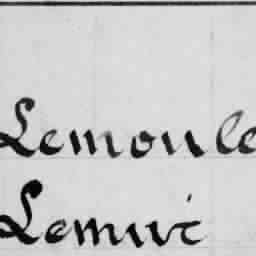 Lemoule
Lemuic